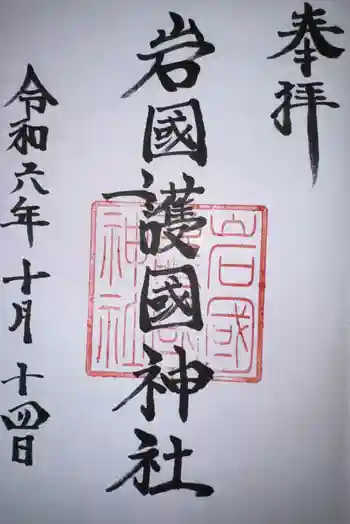 奉拝
岩國護國神社
令和六年十月十四日
岩國
神社